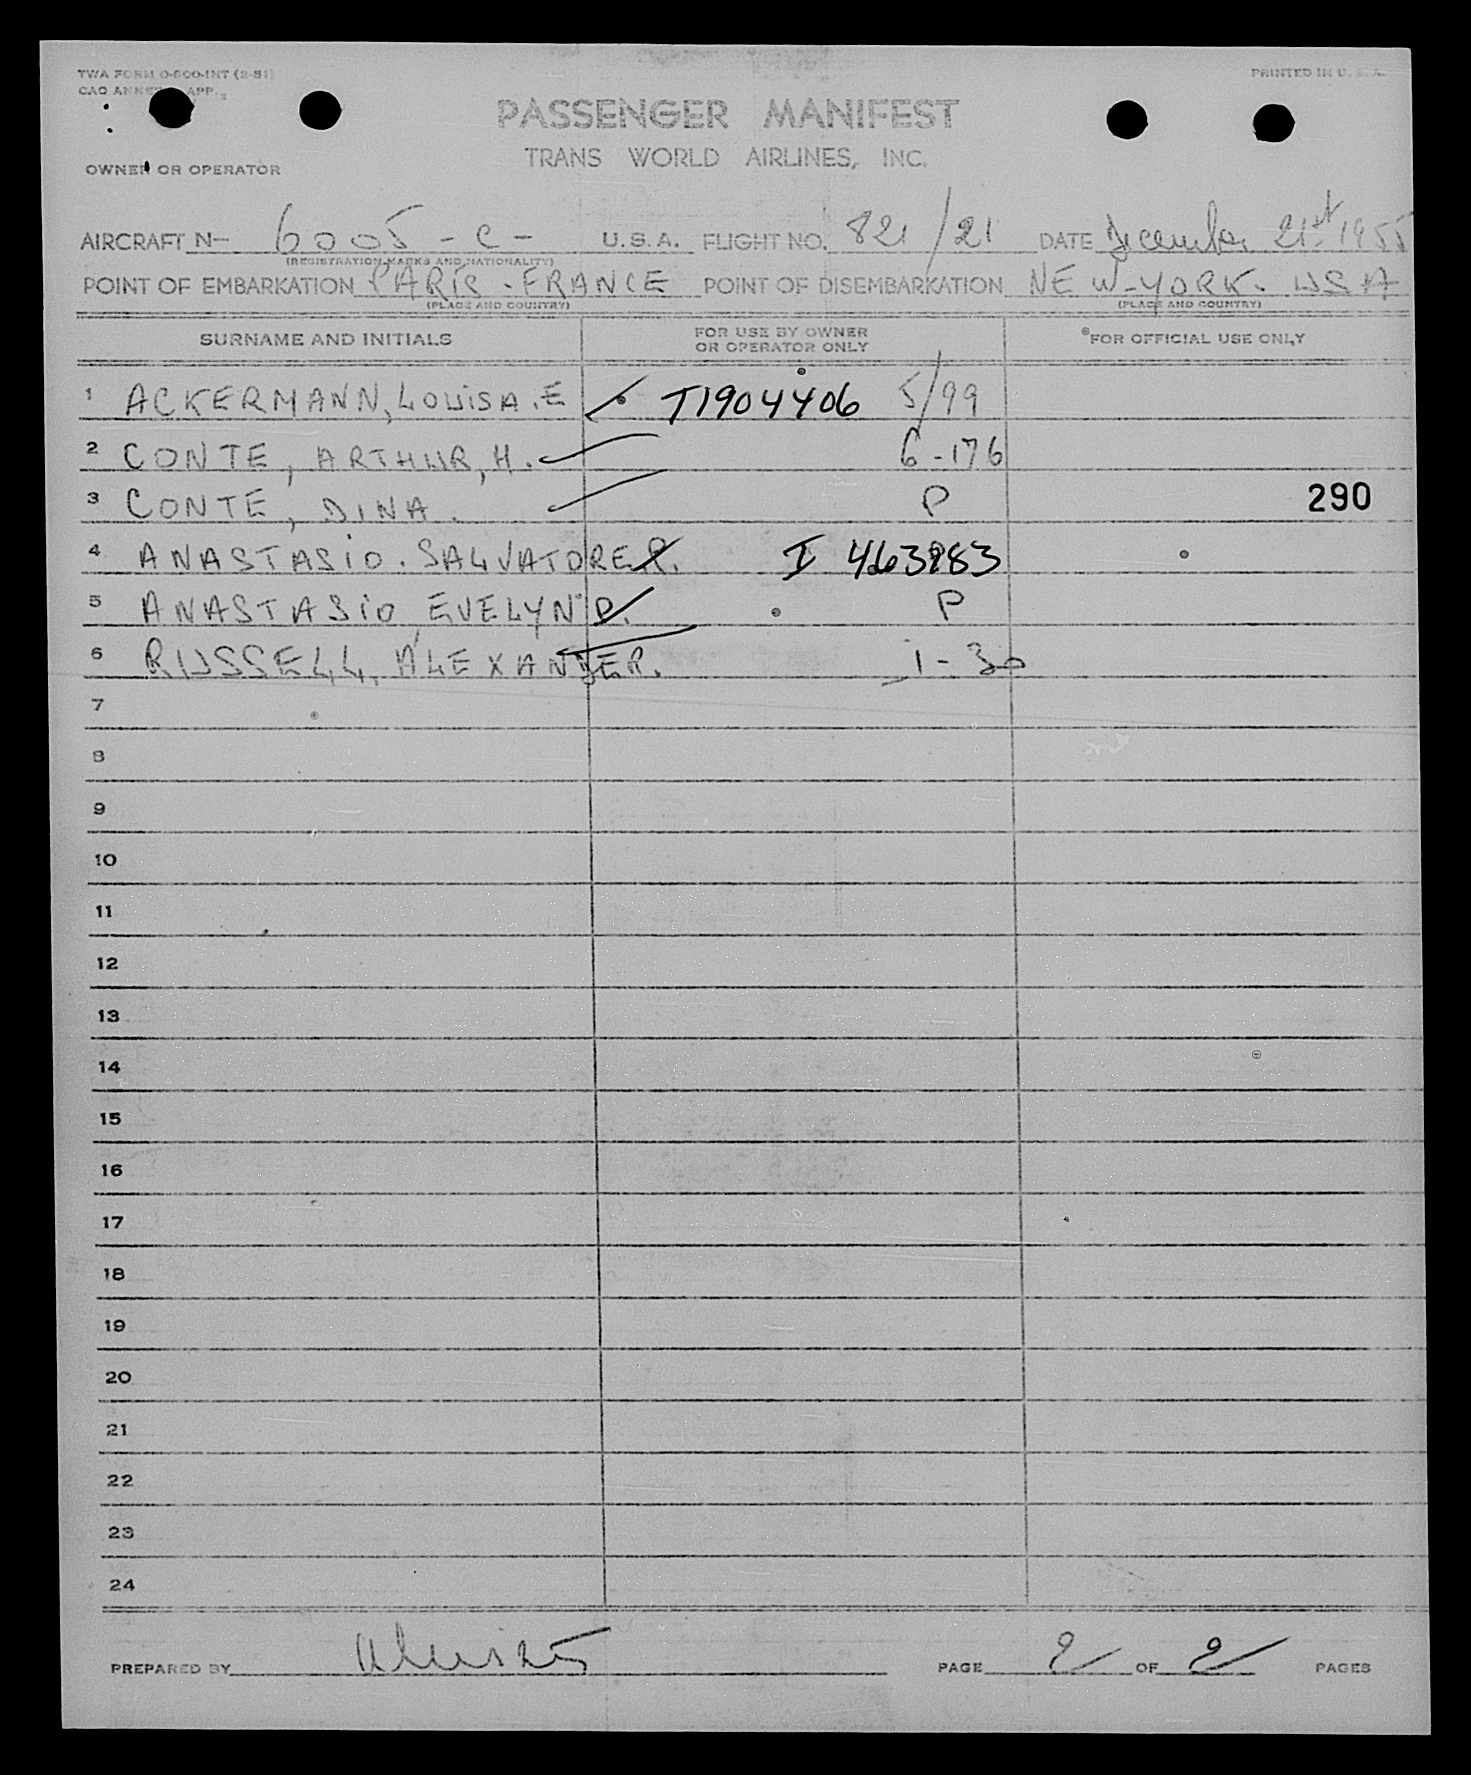 TWA FORM O-800-INT (2-51)
PRINTED IN U.S.A.
PASSENGER MANIFEST
TRANS WORLD AIRLINES, INC.
OWNER OR OPERATOR
AIRCRAFT N- 6005-C- U.S.A. FLIGHT NO. 821/21 DATE December 21st 1955
(REGISTRATION MARKS AND NATIONALITY)
POINT OF EMBARKATION PARIS - FRANCE POINT OF DISEMBARKATION NEW-YORK. USA
(PLACE AND COUNTRY) (PLACE AND COUNTRY)
SURNAME AND INITIALS FOR USE BY OWNER OR OPERATOR ONLY FOR OFFICIAL USE ONLY
1 ACKERMANN, LOUISA.E T1904406 5/99
2 CONTE, ARTHUR, H. 6-176
3 CONTE, DINA. P 290
4 ANASTASIO. SALVATORE R. I 463983
5 ANASTASIO, EVELYN D. P
6 RUSSELL, ALEXANDER. 1-30
7
8
9
10
11
12
13
14
15
16
17
18
19
20
21
22
23
24
PREPARED BY PAGE 2 OF 2 PAGES